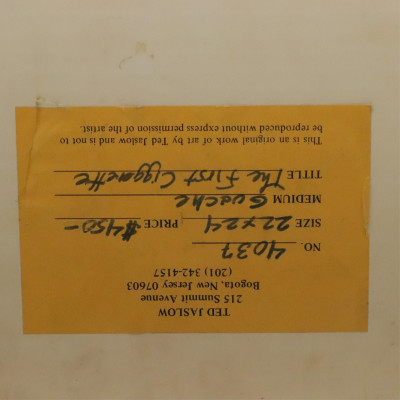 TED JASLOW
215 Summit Avenue
Bogota, New Jersey 07603
(201) 342-4157
NO. 4037
SIZE 22x24 PRICE $450-
MEDIUM Guache
TITLE The First Ciggarette
This is an original work of art by Ted Jaslow and is not to
be reproduced without express permission of the artist.